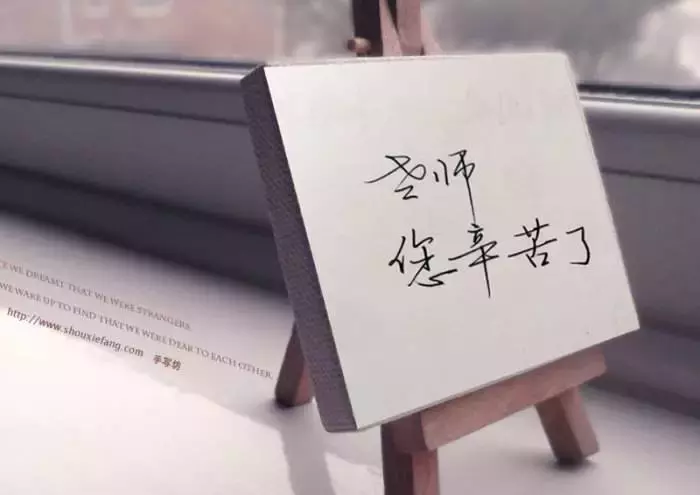 老师
您辛苦了
CE WE DREAMT THAT WE WERE STRANGERS.
WE WAKE UP TO FIND THAT WE WERE DEAR TO EACH OTHER.
http://www.shouxiefang.com 手写坊